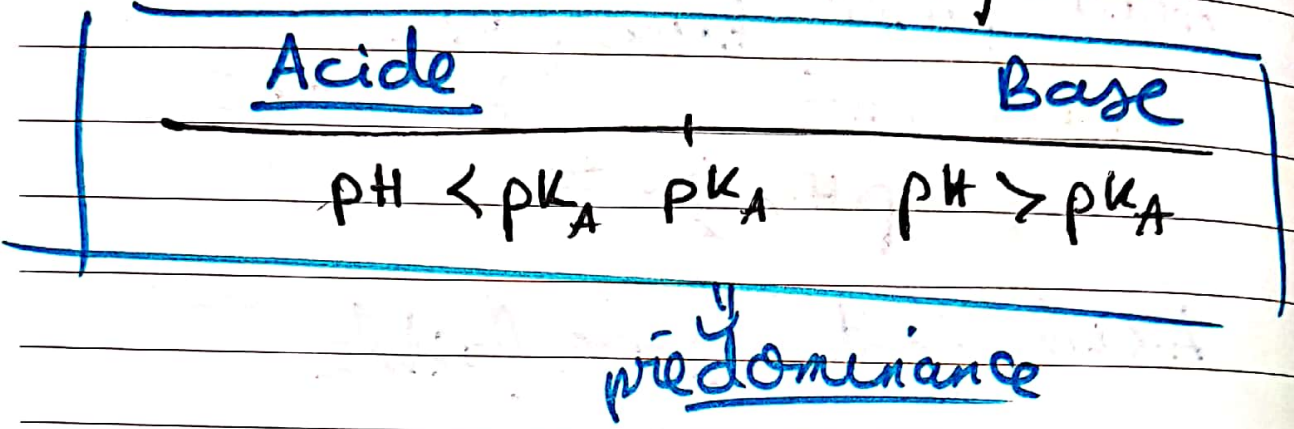 Acide Base
pH < pKA pKA pH > pKA
prédominance